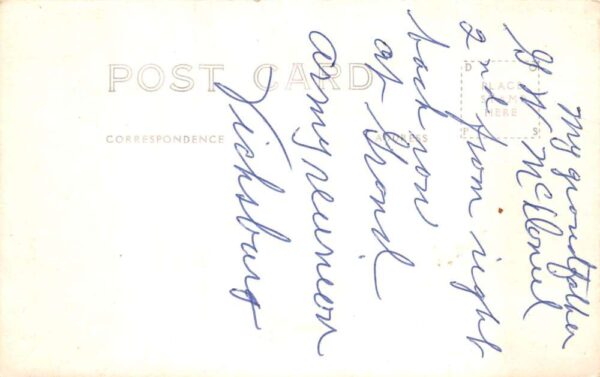 POST CARD
CORRESPONDENCE
ADDRESS
PLACE
STAMP
HERE
My grandfather
G W McDoniel
2nd from right
back row
at Grand
army reunion
Vicksburg